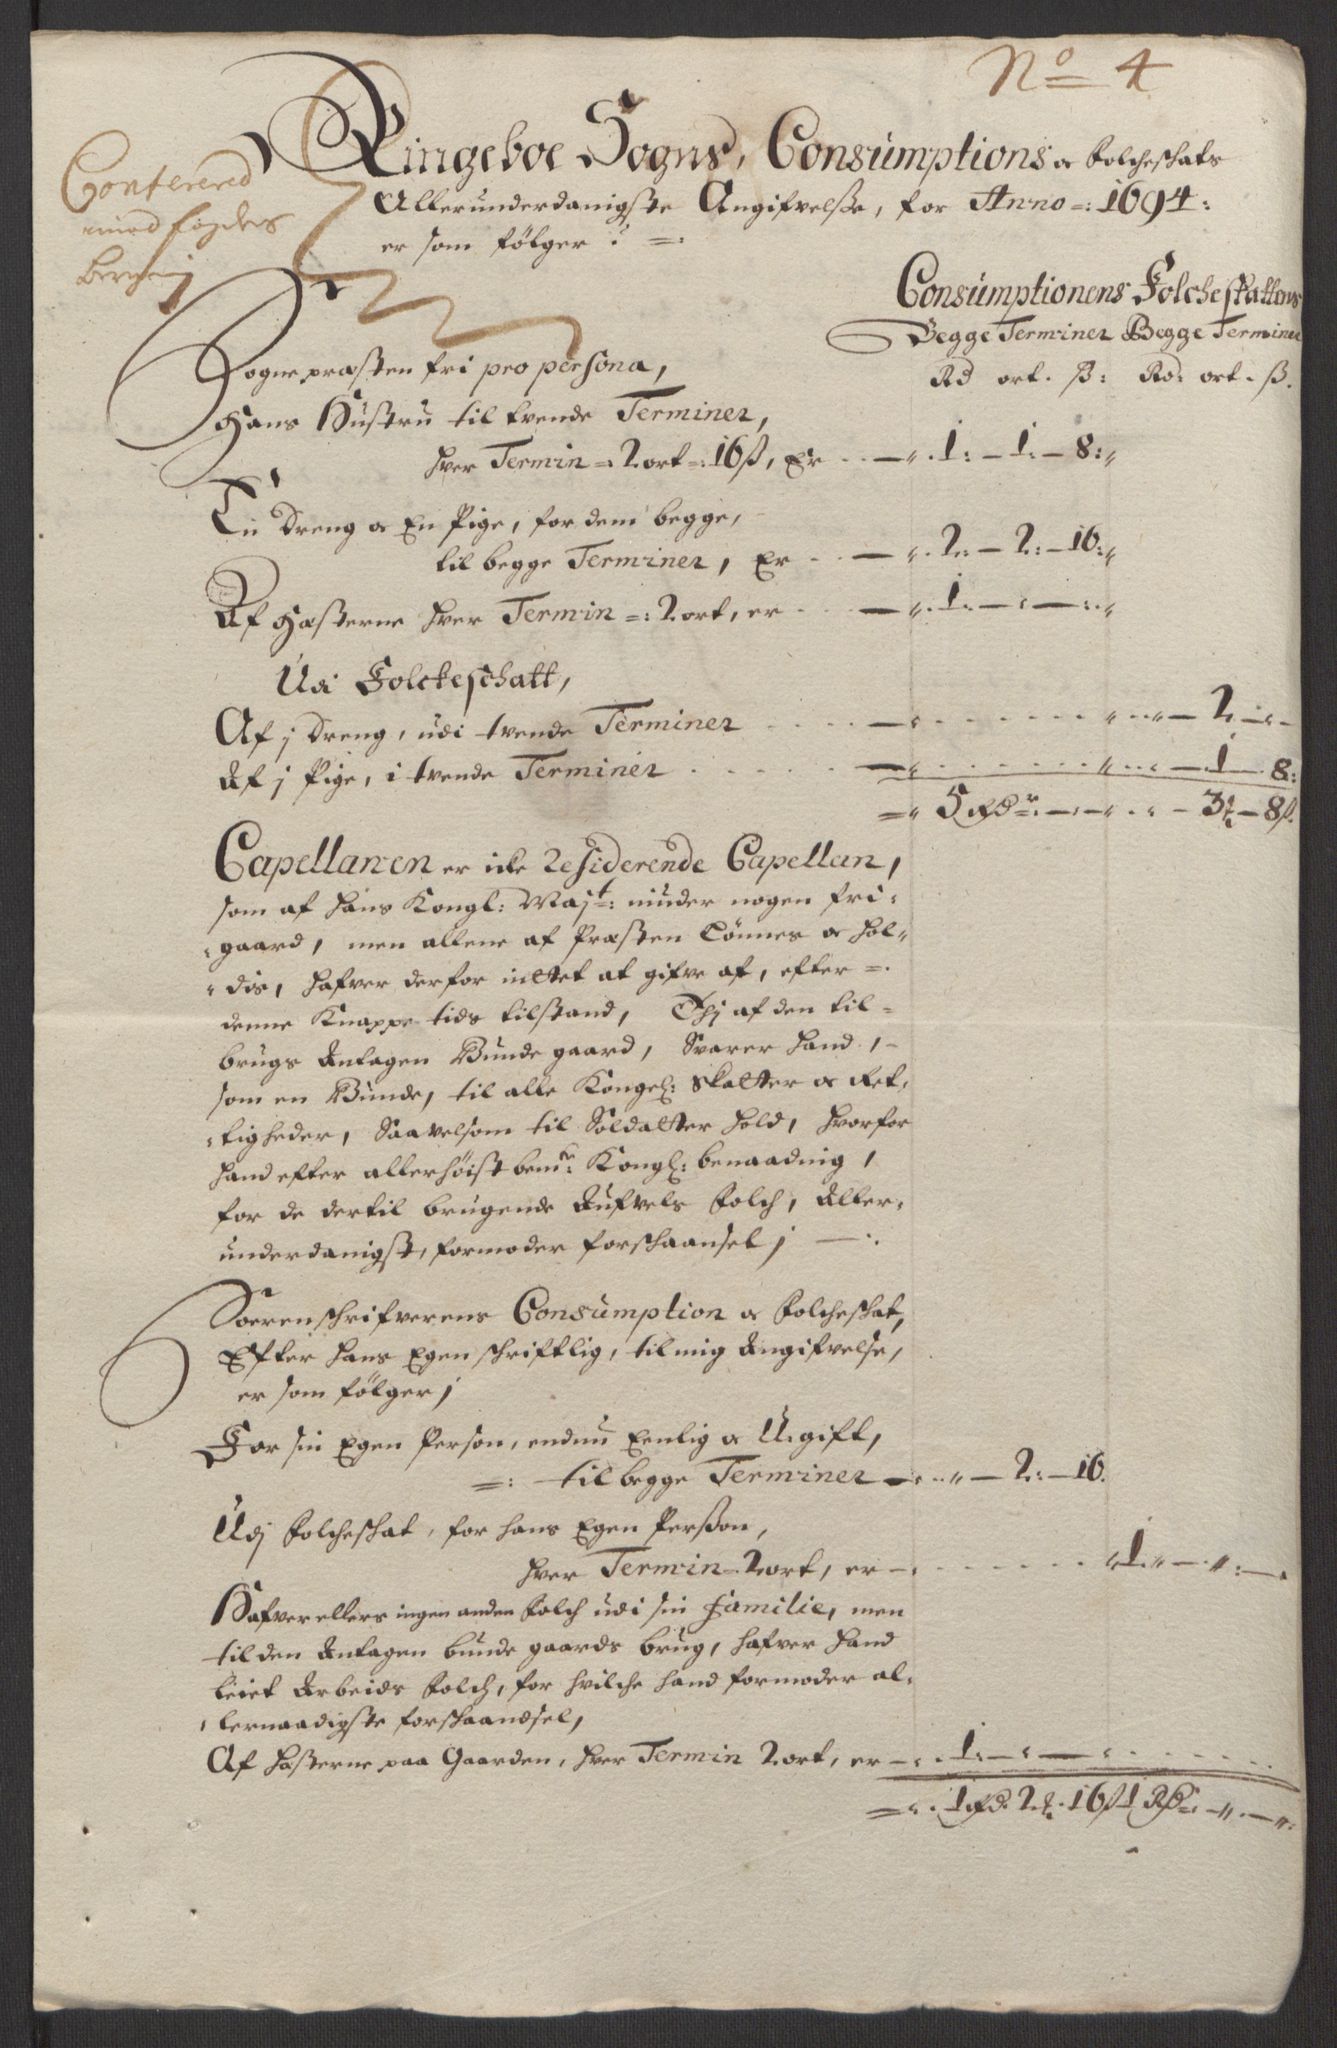 No 4
Ringeboe Sogns, Consumptions oc Folcheschats
Allerunderdanigste Angifvelsse, for Anno =: 1694:
er som følger :=:
Conferered
med fogdens
Consumptionens Folcheskattens
Begge Terminer Begge Terminer
Rd ort. ß: Rd: ort. ß.
Sognepræsten fri pro persona,
Hans Hustru til tvende Terminer,
hver Termin =: 2 ort =: 16 ß, Er - 1: - 1: - 8:
En Dreng oc En Pige, for dem begge,
til begge Terminer, Er - 2: - 2: - 16:
Af Hæsterne hver Termin =: 2 ort, er - 1. -
Udi Folckeschatt,
Af j Dreng, udi tvende Terminer - 2 -
Af j Pige, i tvende Terminer - 1 - 8:
= 5 Rdr - 3 - 8 ß.
Capellanen er icke Residerende Capellan,
som af Hans Kongl: Majt: niuder nogen fri=
gaard, men allene af Præsten Lønnes oc hol=
dis, hafver derfor intet at gifve af, efter =
denne Knappe tids tilstand, Thj af den til=
brugs Antagen Bunde gaard, Svarer hand, -
som en Bunde, til alle Kongel: Skatter oc Ret=
tigheder, Saavelsom til Soldatter hold, hvorfor
hand efter allerhøist bem.te Kongl: benaading,
for de dertil brugende Aufvels Folch, Aller=
underdanigst, formoder forschaansel;
Sorenschrifverens Consumption oc Folcheschat,
Efter hans Egen schriftlig, til mig Angifvelse,
er som følger;
For sin Egen Person, endnu Eenlig oc Ugift,
=: til begge Terminer - 2: - 16.
Udj Folcheschat, for hans Egen Persson,
hver Termin = 2 ort, er - 1 -
Hafver ellers ingen anden Folch udi sin familie, men
til den Antagen bunde gaards brug, hafver hand
leiet Arbeids Folch, for hvilche hand formoder al=
lernaadigste forschaandsel,
Af Hæsterne paa Gaarden, hver Termin 2 ort, er - 1. -
= 1 Rd. 2 . 16 ß 1 Rd -